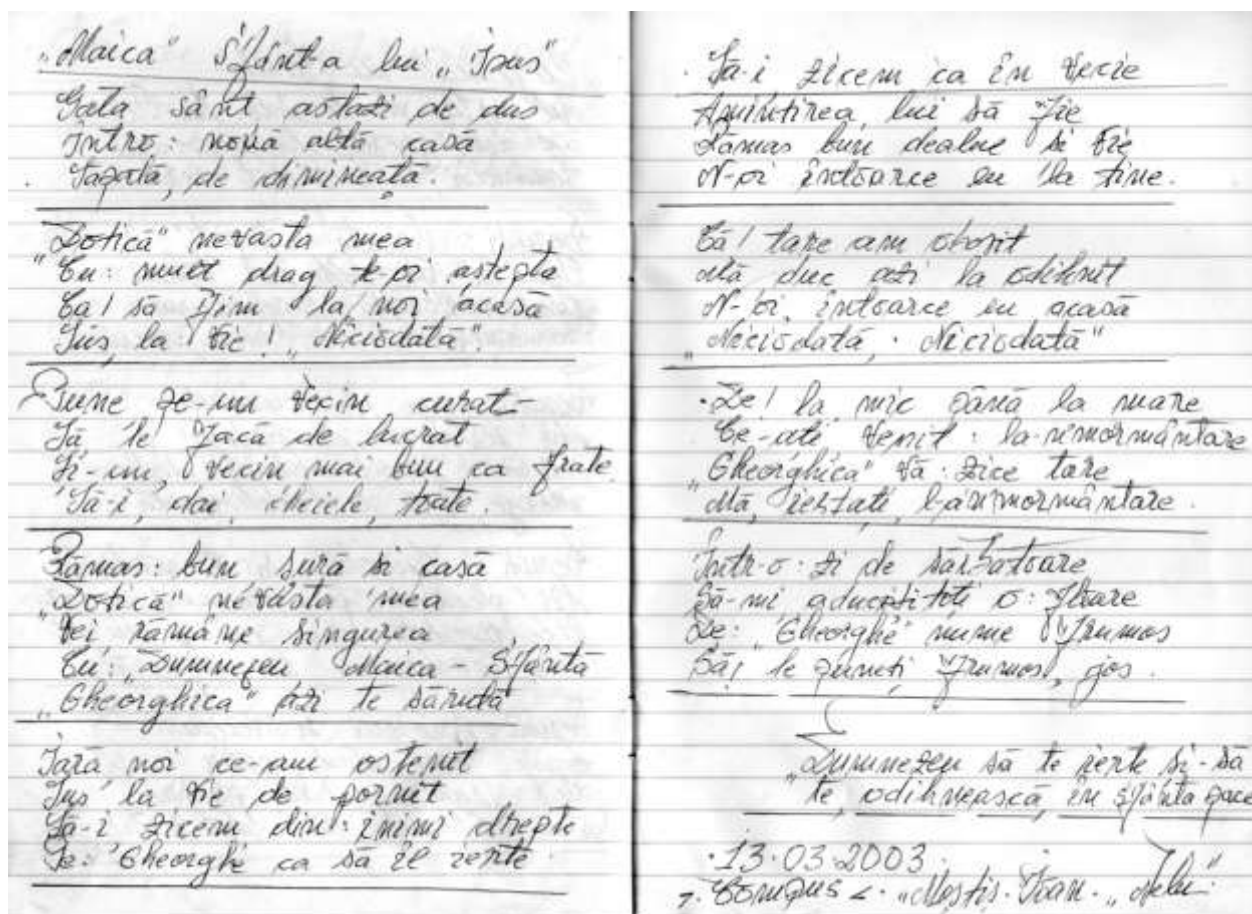 "Maica" Sfânt-a lui "Isus"
Gata sânt astazi de dus
Intro: nouă altă casă
Săpată, de dimineaţă.
"Dotică" nevasta mea
"Cu: mult drag te-oi aştepta
Ca! să fim la noi acasă
Sus, la: vie! "Niciodată".
Pune pe-un vecin curat
Să le facă de lucrat
Şi-un, vecin mai bun ca frate.
Să-i, dai, cheiele, toate.
Rămas: bun şură si casă
"Dotică" nevăsta mea
Vei rămâne singurea
Cu: "Dumnezeu Maica - Sfântă
"Gheorghica" azi te sărută
Iară noi ce-am ostenit
Sus la vie de pornit
Să-i zicem din: inimi drepte
Pe: "Gheorghe ca să il ierte.
Să-i zicem ca în vecie
Amintirea, lui să fie
Rămas bun dealue si vie
N-oi întoarce eu la tine.
Că! tare am obosit
Mă duc azi la odihnit
N-oi, întoarce eu acasă
"Niciodată, · Niciodată"
·De! la mic pănă la mare
Ce-ati venit: la-nmormântare
"Gheorghica" vă: zice tare
Mă, iertati, l-ânmormântare.
Într-o: zi de sărbătoare
Să-mi aduceti o: floare
De: "Gheorghe" nume frumos
Să, le puneţi frumos, jos.
"Dumnezeu să te ierte si-să
te, odihnească, în sfânta pace
·13·03·2003·
Compus <· "Moştiş · Ioan · "Nelu"